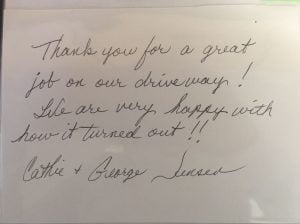 Thank you for a great
job on our driveway!
We are very happy with
how it turned out!!
Cathie + George Jensen